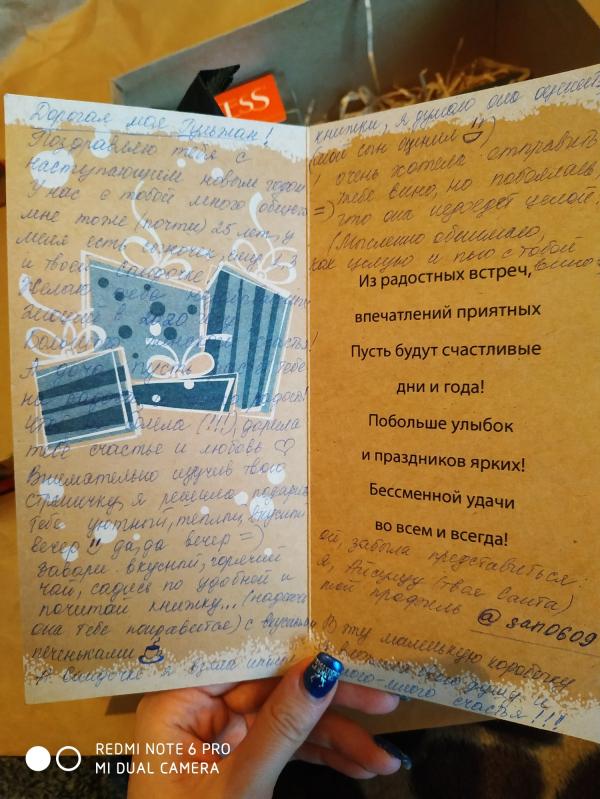 ESS
Дорогая моя Гульжан!
Поздравляю тебя с
наступающим новым годом
У нас с тобой много общего
мне тоже (почти) 25 лет, у
меня есть
и твоей
Желаю
эмоций в 2020
Большого
А дочь пусть тебе
на радость!
болела (!!!), дарила
тебе счастье и любовь ♡
Внимательно изучив твою
страничку, я решила подарить
тебе уютный, теплый, вкусный
вечер да, да вечер =)
завари вкусный, горячий
чай, садись по удобней и
почитай книжку... (надеюсь
она тебе понравится) с вкусными
печеньками
А я взяла
книжки, я думаю она оценит
(мой сын оценил )
, очень хотела отправить
тебе вино, но побоялась,
=) что она недоедет целой.
(Мысленно обнимаю,
как целую и пью с тобой
вино
Из радостных встреч,
впечатлений приятных
Пусть будут счастливые
дни и года!
Побольше улыбок
и праздников ярких!
Бессменной удачи
во всем и всегда!
ой, забыла представиться:
я, Айсулуу (твоя Санта)
мой профиль @ san0609
В эту маленькую коробочку
я вложила свою душу и
много-много счастья!!!
REDMI NOTE 6 PRO
MI DUAL CAMERA